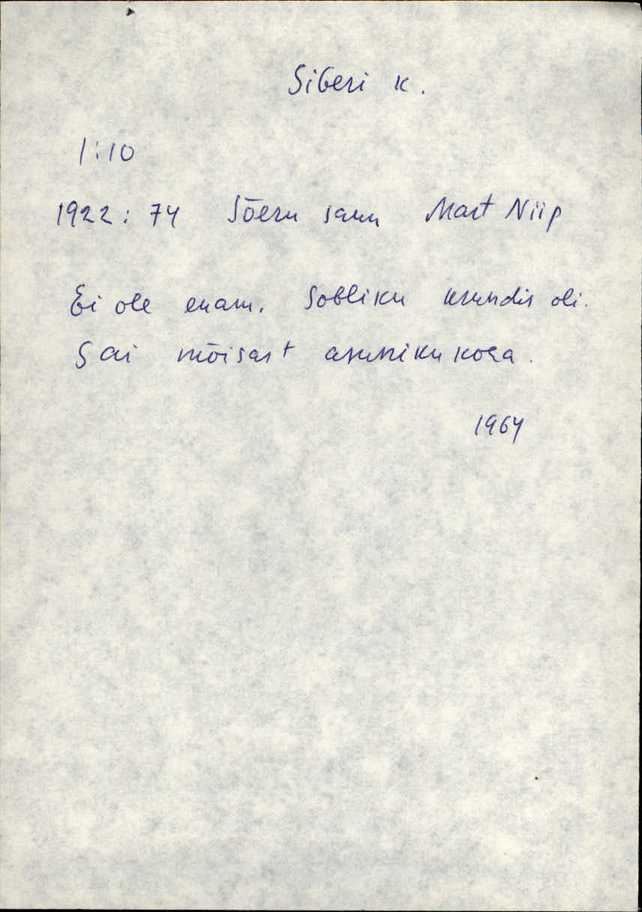 Siberi k.
1:10
1922: 74 Sõeru saun Mart Niip
Ei ole enam. Sobliku krundis oli.
Sai mõisast asunikukoha.
1964